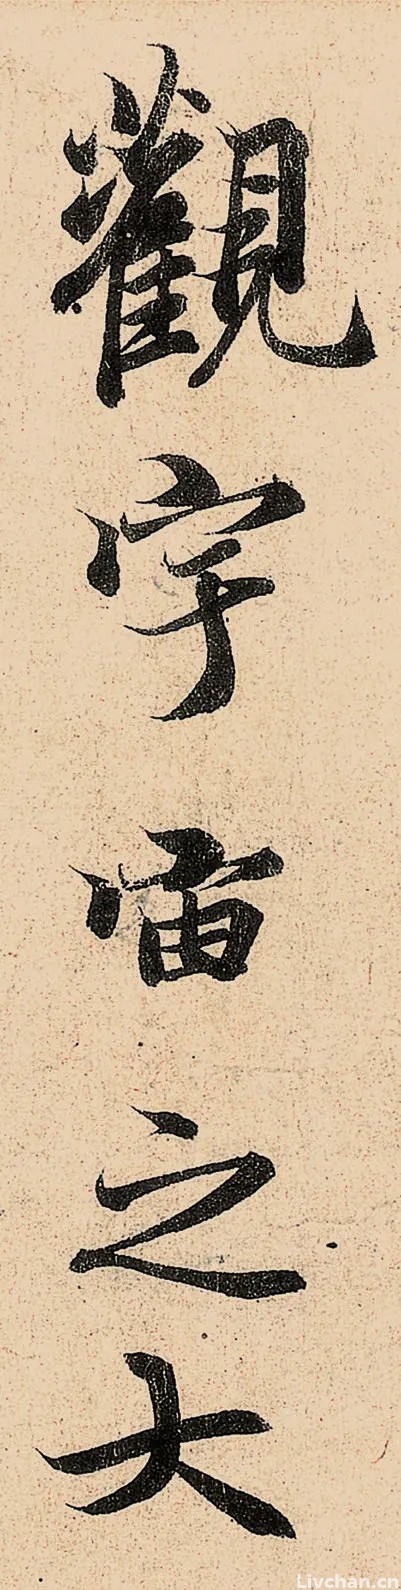 觀宇宙之大
Livchan.cn